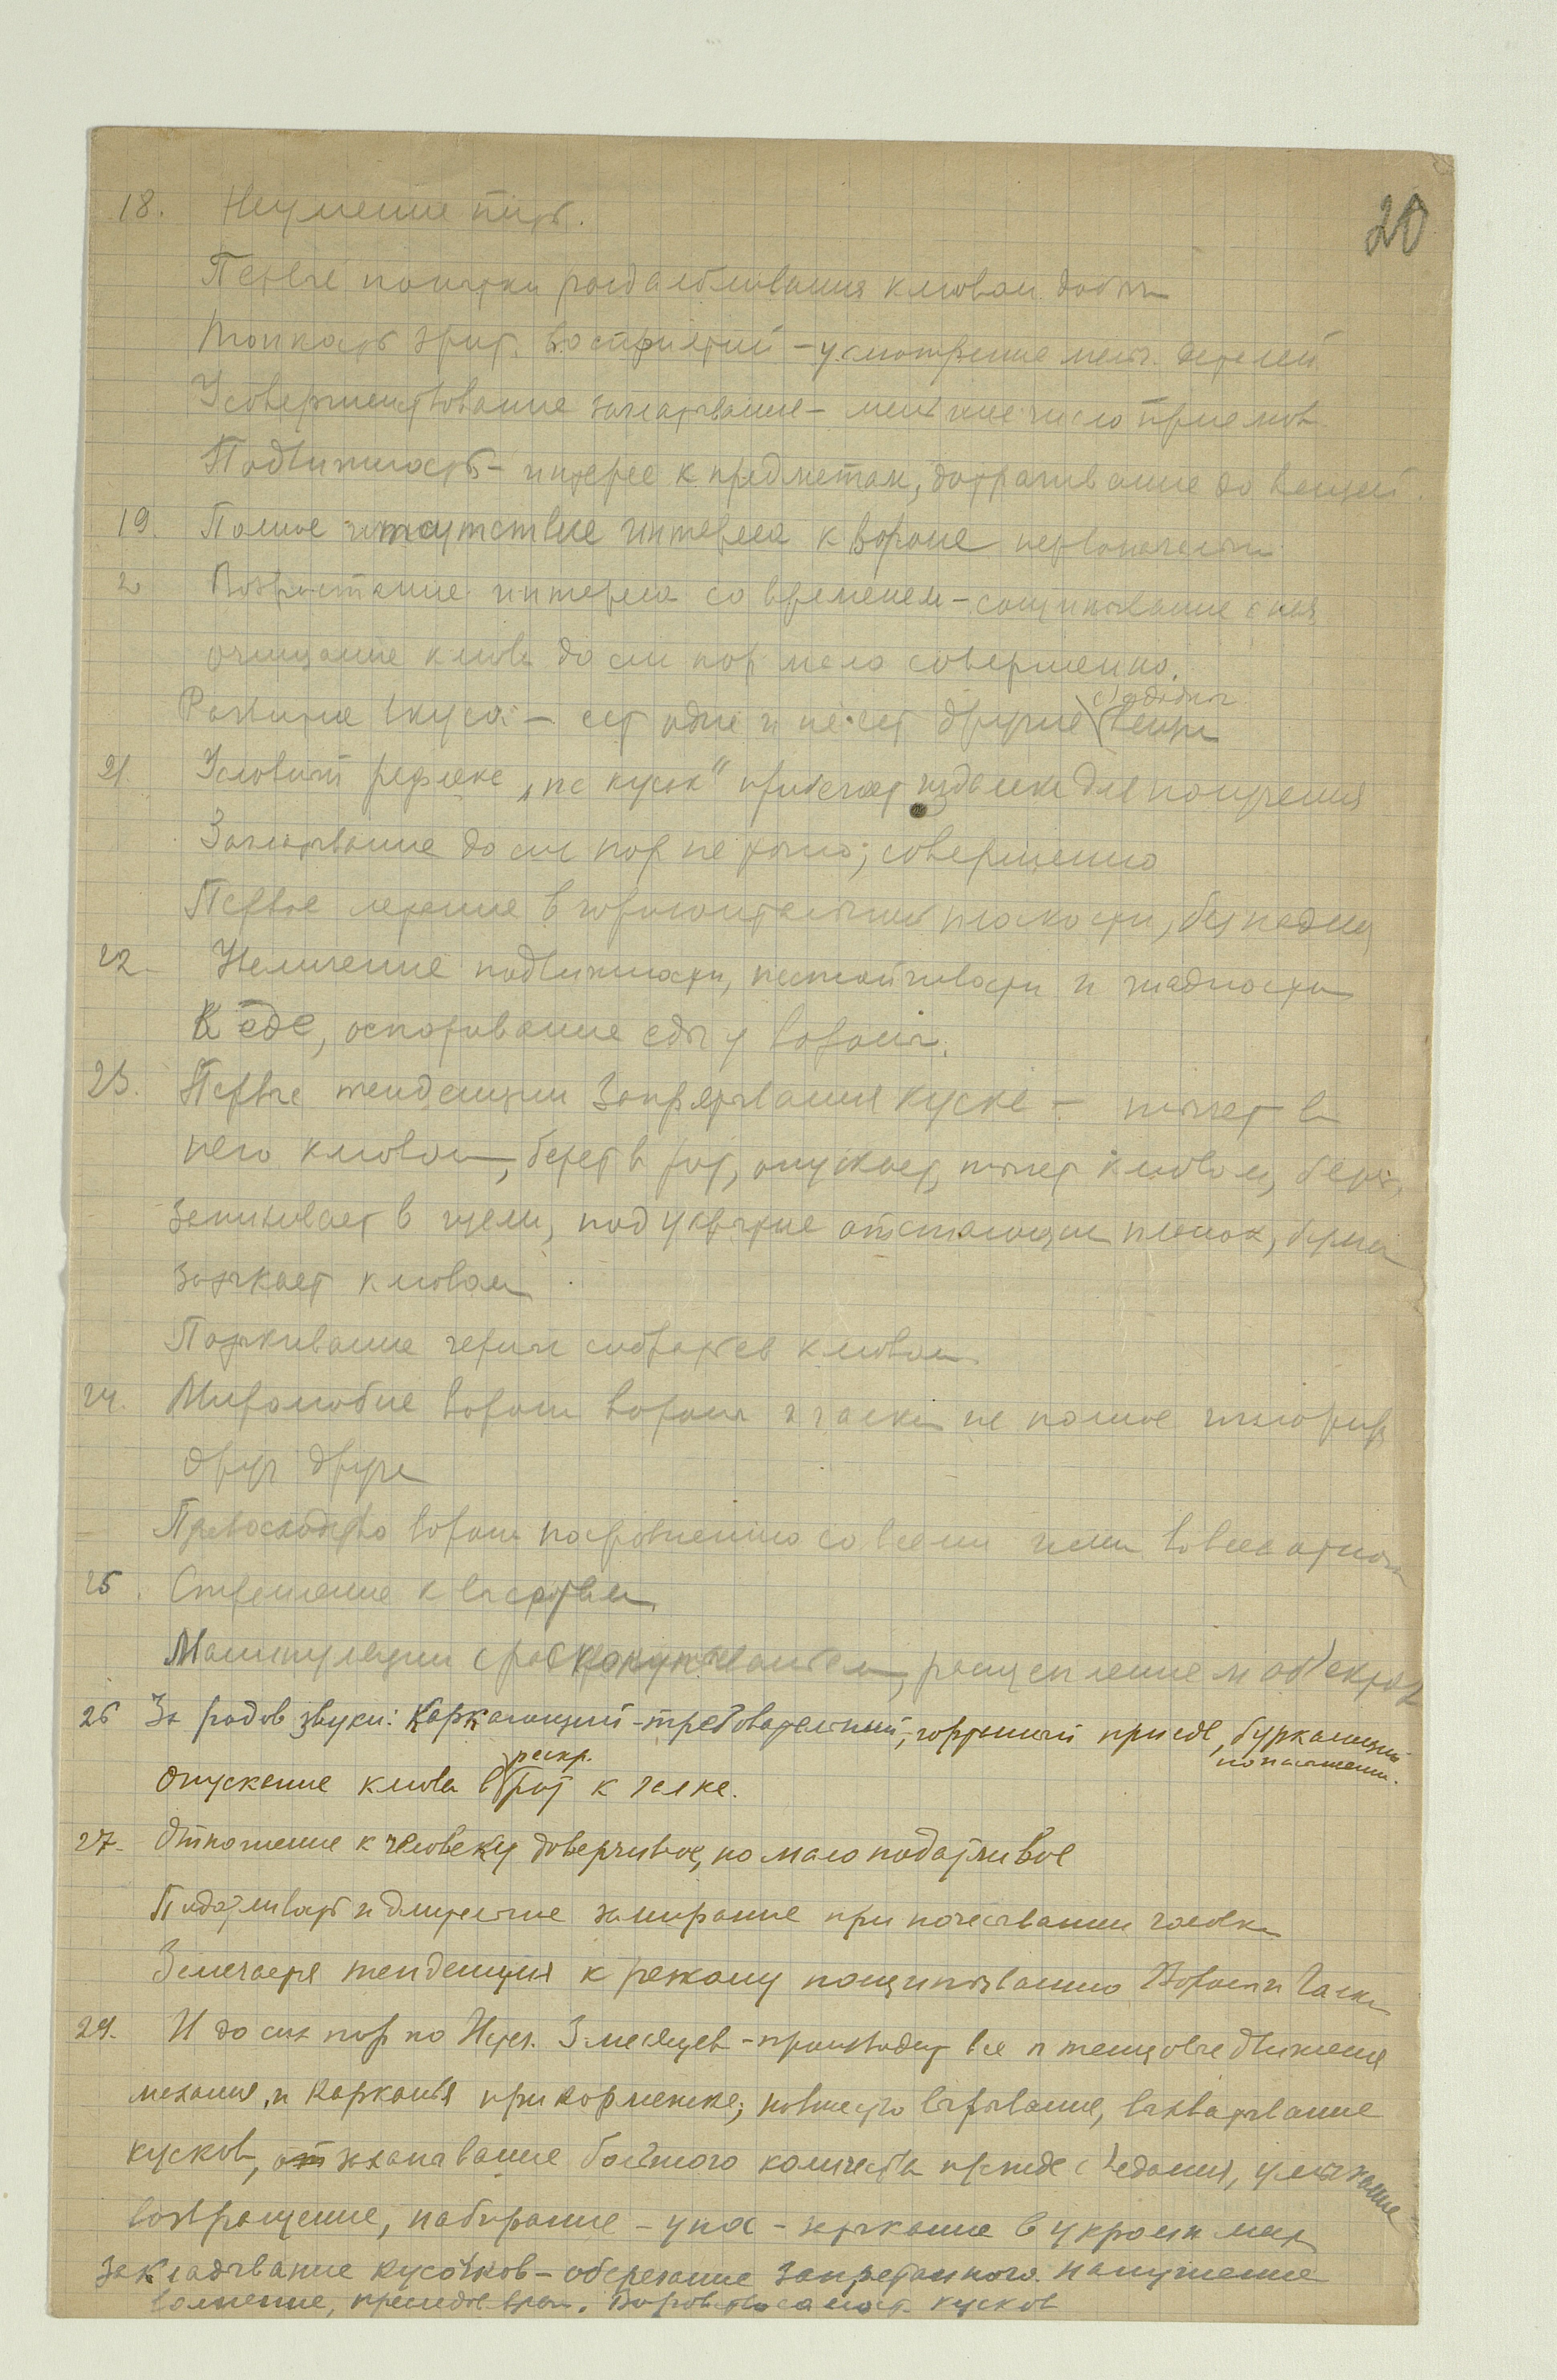 20
18. Неумение пить.
Первые попытки раздалбливания клювом добычи
Тонкость зрит. восприятий – усмотрение мелч. деталей
Усовершенствование заглатывания – меньшее число приемов.
Подвижность – интерес к предметам, дотрагивание до вещей.
19. Полное отсутствие интереса к вороне первоначально
20 Возрастание интереса со временем – сощипывание с нея
очищание клюва до сих пор мало совершенно.
Развитие вкуса – ест одни и не ест другие съедобные вещи
21. Условный рефлекс „на кусок" прибегает издалека для получения
Заглатывание до сих пор не точно; совершенно
Первое летание в горизонтальной плоскости, без падения
22. Увеличение подвижности, настойчивости и жадности
к еде, оспаривание еды у вороны.
23. Первые тенденции запрятывания куска – тычет в
него клювом, берет в рот, опускает, тычет клювом, берет,
запихивает в щели, под укрытие отстающих пленок, бумаги
затыкает клювом
Потыкивание
24. Миролюбие вороны и галки не полное
друг друга
Превосходство вороны по сравнению со всеми ими во всех отнош
25. Стремление к
Манипуляции с расщеплением объекта
26 3 рода звуков: каркающий – требовательный, гортанный при еде, буркающий
по насыщении.
Опускание клюва в раскр. рот к галке.
27. Отношение к человеку доверчивое, но мало податливое
Податливость и длительное замирание при почесывании головки
Замечается тенденция к резкому пощипыванию Вороны и Галки
29. И до сих пор по истеч. 3 месяцев – производит все птенцовые движения
махания, и каркания при кормежке; вырывание, выхватывание
кусков, захапывание большого количества прежде съедания, умыкание
возвращение, набирание – унос – тыкание в укромн. мест.
Закладывание кусочков – оберегание запрятанного.
волнение, кусков